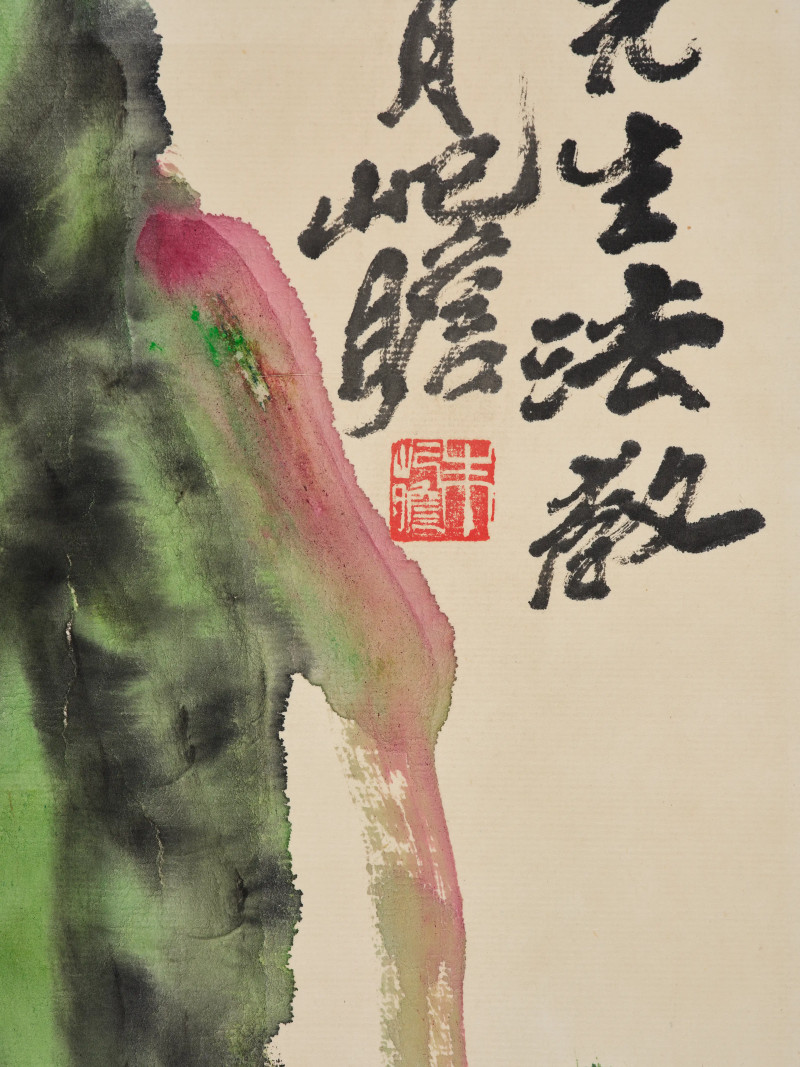 先生法教
月屺瞻
朱
屺瞻